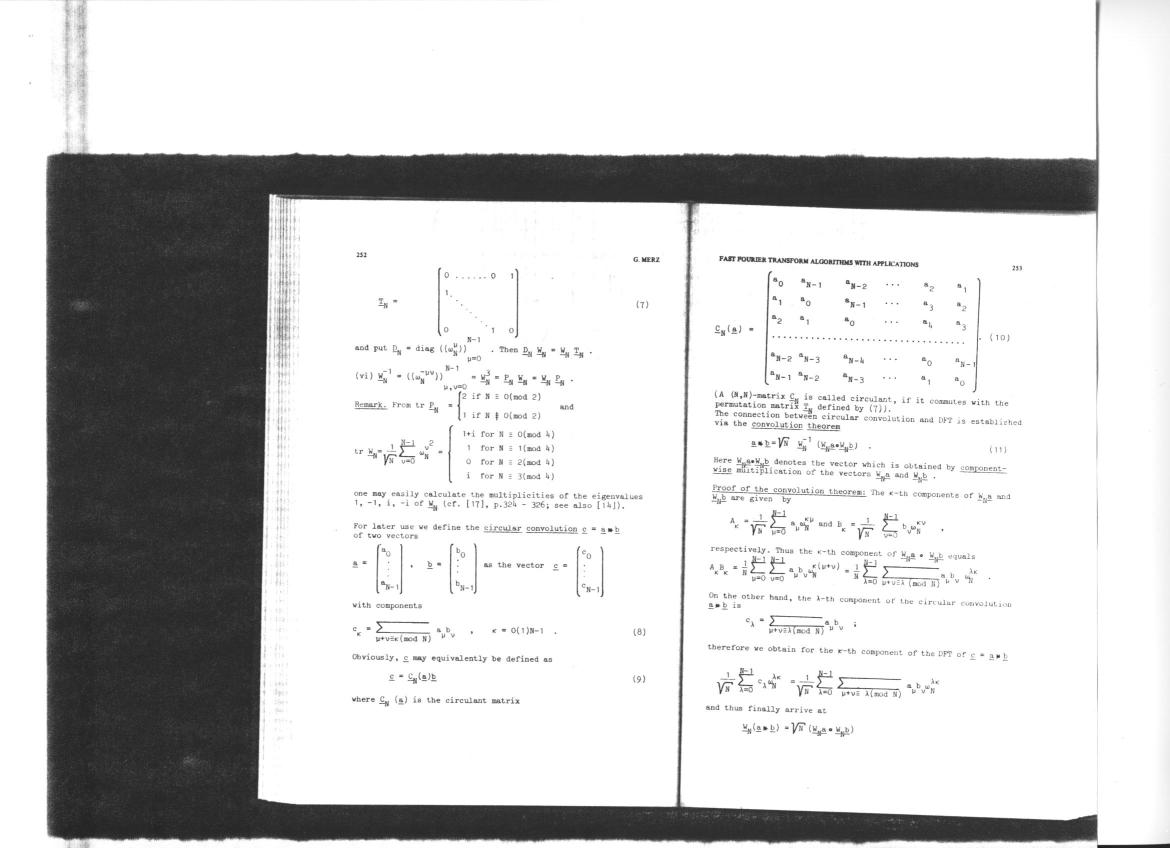 252
G. MERZ
T_N = ( 0 ...... 0 1 / 1 . . . / 0 1 0 ) (7)
and put D_N = diag ((ω_N^μ))_{μ=0}^{N-1} . Then D_N W_N = W_N T_N .
(vi) W_N^{-1} = ((ω_N^{-μν}))_{μ,ν=0}^{N-1} = W_N^3 = P_N W_N = W_N P_N .
Remark. From tr P_N = { 2 if N ≡ 0(mod 2)
1 if N ≢ 0(mod 2) and
tr W_N = 1/√N Σ_{ν=0}^{N-1} ω_N^{ν^2} = { 1+i for N ≡ 0(mod 4)
1 for N ≡ 1(mod 4)
0 for N ≡ 2(mod 4)
i for N ≡ 3(mod 4)
one may easily calculate the multiplicities of the eigenvalues
1, -1, i, -i of W_N (cf. [17], p.324 - 326; see also [14]).
For later use we define the circular convolution c = a * b
of two vectors
a = ( a_0 . . . a_{N-1} ) , b = ( b_0 . . . b_{N-1} ) as the vector c = ( c_0 . . . c_{N-1} )
with components
c_κ = Σ_{μ+ν≡κ(mod N)} a_μ b_ν , κ = 0(1)N-1 . (8)
Obviously, c may equivalently be defined as
c = C_N(a)b (9)
where C_N (a) is the circulant matrix
FAST FOURIER TRANSFORM ALGORITHMS WITH APPLICATIONS
253
a_0 a_{N-1} a_{N-2} ... a_2 a_1
a_1 a_0 a_{N-1} ... a_3 a_2
a_2 a_1 a_0 ... a_4 a_3
C_N(a) = ........................................ . (10)
a_{N-2} a_{N-3} a_{N-4} ... a_0 a_{N-1}
a_{N-1} a_{N-2} a_{N-3} ... a_1 a_0
(A (N,N)-matrix C_N is called circulant, if it commutes with the
permutation matrix T_N defined by (7)).
The connection between circular convolution and DFT is established
via the convolution theorem
a * b = √N W_N^{-1} (W_N a • W_N b) . (11)
Here W_N a • W_N b denotes the vector which is obtained by component-
wise multiplication of the vectors W_N a and W_N b .
Proof of the convolution theorem: The κ-th components of W_N a and
W_N b are given by
A_κ = 1/√N Σ_{μ=0}^{N-1} a_μ ω_N^{κμ} and B_κ = 1/√N Σ_{ν=0}^{N-1} b_ν ω_N^{κν} ,
respectively. Thus the κ-th component of W_N a • W_N b equals
A_κ B_κ = 1/N Σ_{μ=0}^{N-1} Σ_{ν=0}^{N-1} a_μ b_ν ω_N^{κ(μ+ν)} = 1/N Σ_{λ=0}^{N-1} Σ_{μ+ν≡λ (mod N)} a_μ b_ν ω_N^{λκ} .
On the other hand, the λ-th component of the circular convolution
a * b is
c_λ = Σ_{μ+ν≡λ(mod N)} a_μ b_ν ;
therefore we obtain for the κ-th component of the DFT of c = a * b
1/√N Σ_{λ=0}^{N-1} c_λ ω_N^{λκ} = 1/√N Σ_{λ=0}^{N-1} Σ_{μ+ν≡ λ(mod N)} a_μ b_ν ω_N^{λκ}
and thus finally arrive at
W_N(a * b) = √N (W_N a • W_N b)